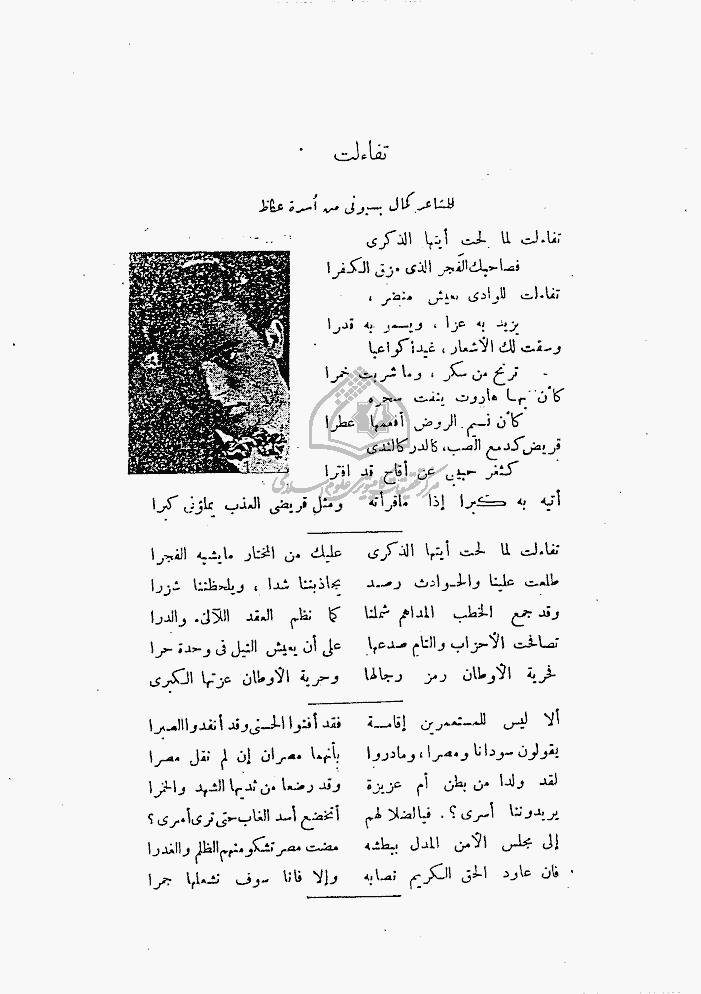 تفاءلت
للشاعر كمال بسيونى من أسرة عكاظ
تفاءلت لما لحت أيتها الذكرى
فصاحبك الفجر الذى مزق الكفرا
تفاءلت للوادى بعيش منضر ،
يزيد به عزا ، ويسمو به قدرا
وسقت لك الأشعار ، غيدا كواعبا
ترنح من سكر ، وما شربت خمرا
كأن بها هاروت ينفث سحره
كأن نسيم الروض أفعمها عطرا
قريض كدمع الصب، كالدر كالندى
كثغر حبيبى عن أقاح قد افترا
أتيه به كبرا إذا ماقرأته ومثل قريضى العذب يملؤنى كبرا
تفاءلت لما لحت أيتها الذكرى عليك من المختار مايشبه الفجرا
طلعت علينا والحوادث رصد يجاذبننا شدا ، ويلحظننا شزرا
وقد جمع الخطب المداهم شملنا كما نظم العقد اللآلىء والدرا
تصافحت الأحزاب والتام صدعها على أن يعيش النيل فى وحدة حرا
فحرية الأوطان رمز رجالها وحرية الأوطان عزتها الكبرى
ألا ليس للمستعمرين إقامة فقد أفنوا الحسنى وقد أنفدوا الصبرا
يقولون سودانا ومصرا ، ومادروا بأنهما مصران إن لم نقل مصرا
لقد ولدا من بطن أم عزيزة وقد رضعا من ثديها الشهد والخمرا
يريدوننا أسرى ؟ . فيالضلالهم أتخضع أسد الغاب حتى ترى أسرى ؟
إلى مجلس الأمن المدل ببطشه مضت مصر تشكو منهم الظلم والغدرا
فان عاود الحق الكريم نصابه وإلا فانا سوف نشعلها جمرا